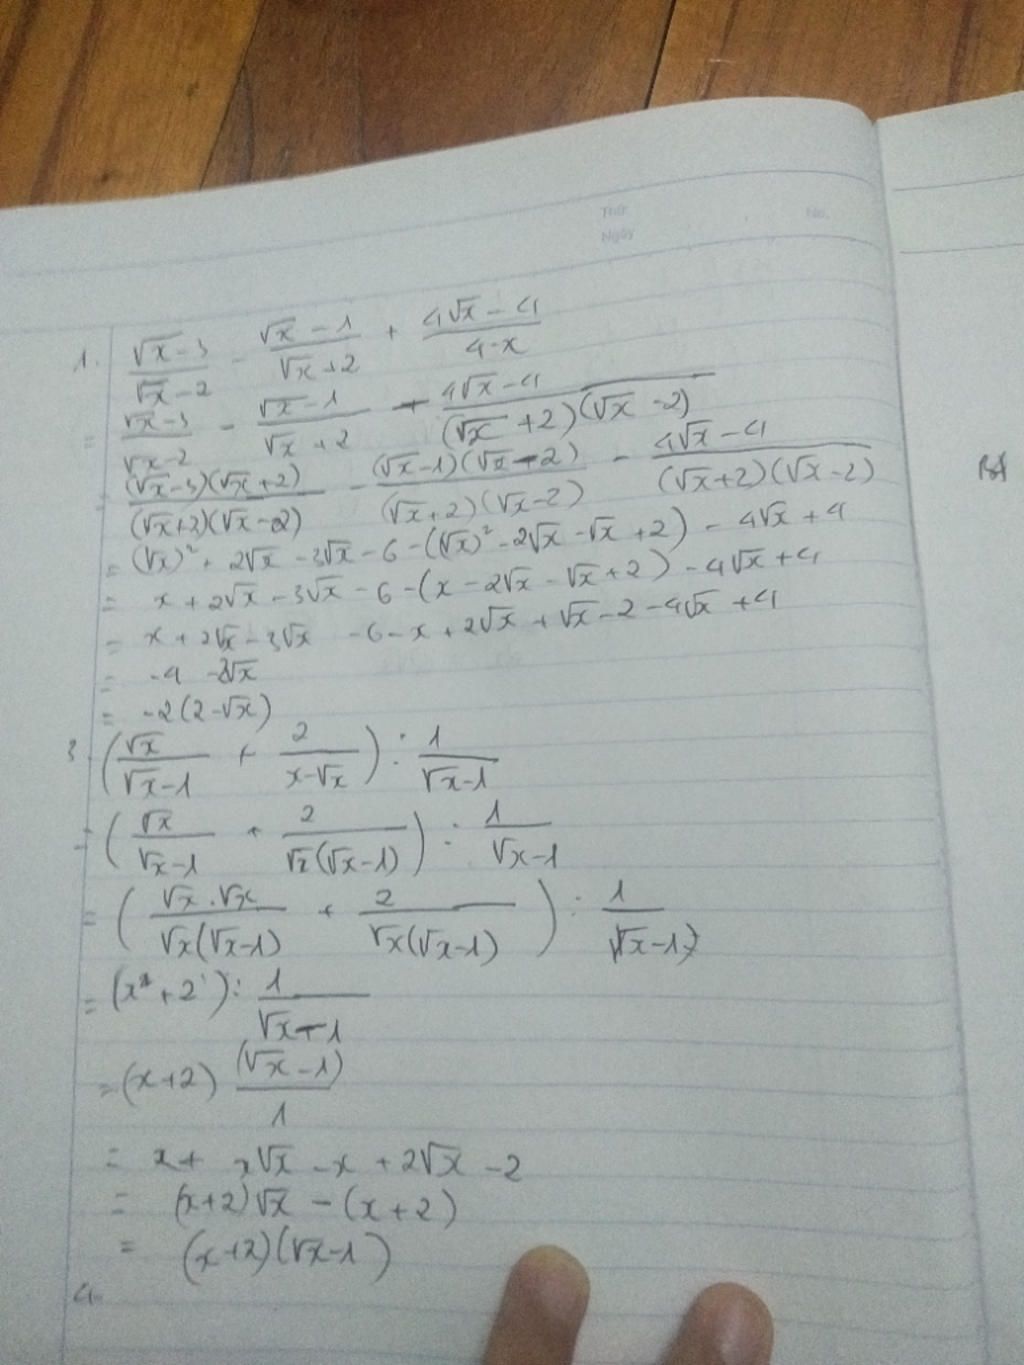 Thứ:
Ngày
No.
1. (√x-3)/(√x-2) - (√x-1)/(√x+2) + (4√x-4)/(4-x)
= (√x-3)/(√x-2) - (√x-1)/(√x+2) - (4√x-4)/((√x+2)(√x-2))
= ((√x-3)(√x+2))/((√x+2)(√x-2)) - ((√x-1)(√x-2))/((√x+2)(√x-2)) - (4√x-4)/((√x+2)(√x-2))
= (√x)² + 2√x - 3√x - 6 - ((√x)² - 2√x - √x + 2) - 4√x + 4
= x + 2√x - 3√x - 6 - (x - 2√x - √x + 2) - 4√x + 4
= x + 2√x - 3√x - 6 - x + 2√x + √x - 2 - 4√x + 4
= -4 - 2√x
= -2(2-√x)
3. (√x/(√x-1) + 2/(x-√x)) : 1/(√x-1)
= (√x/(√x-1) + 2/(√x(√x-1))) : 1/(√x-1)
= ((√x.√x)/(√x(√x-1)) + 2/(√x(√x-1))) : 1/(√x-1)
= (x + 2) : 1/(√x-1)
= (x+2) (√x-1)/1
= x + √x - x + 2√x - 2
= (x+2)√x - (x+2)
= (x+2)(√x-1)
4.